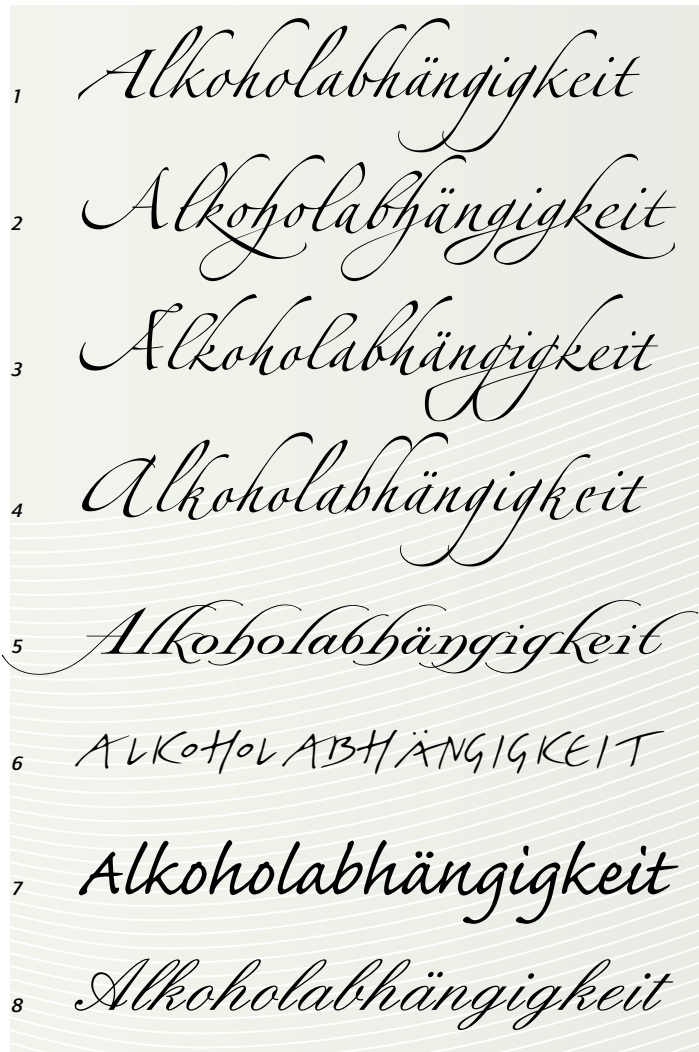 1 Alkoholabhängigkeit
2 Alkoholabhängigkeit
3 Alkoholabhängigkeit
4 Alkoholabhängigkeit
5 Alkoholabhängigkeit
6 ALKOHOLABHÄNGIGKEIT
7 Alkoholabhängigkeit
8 Alkoholabhängigkeit